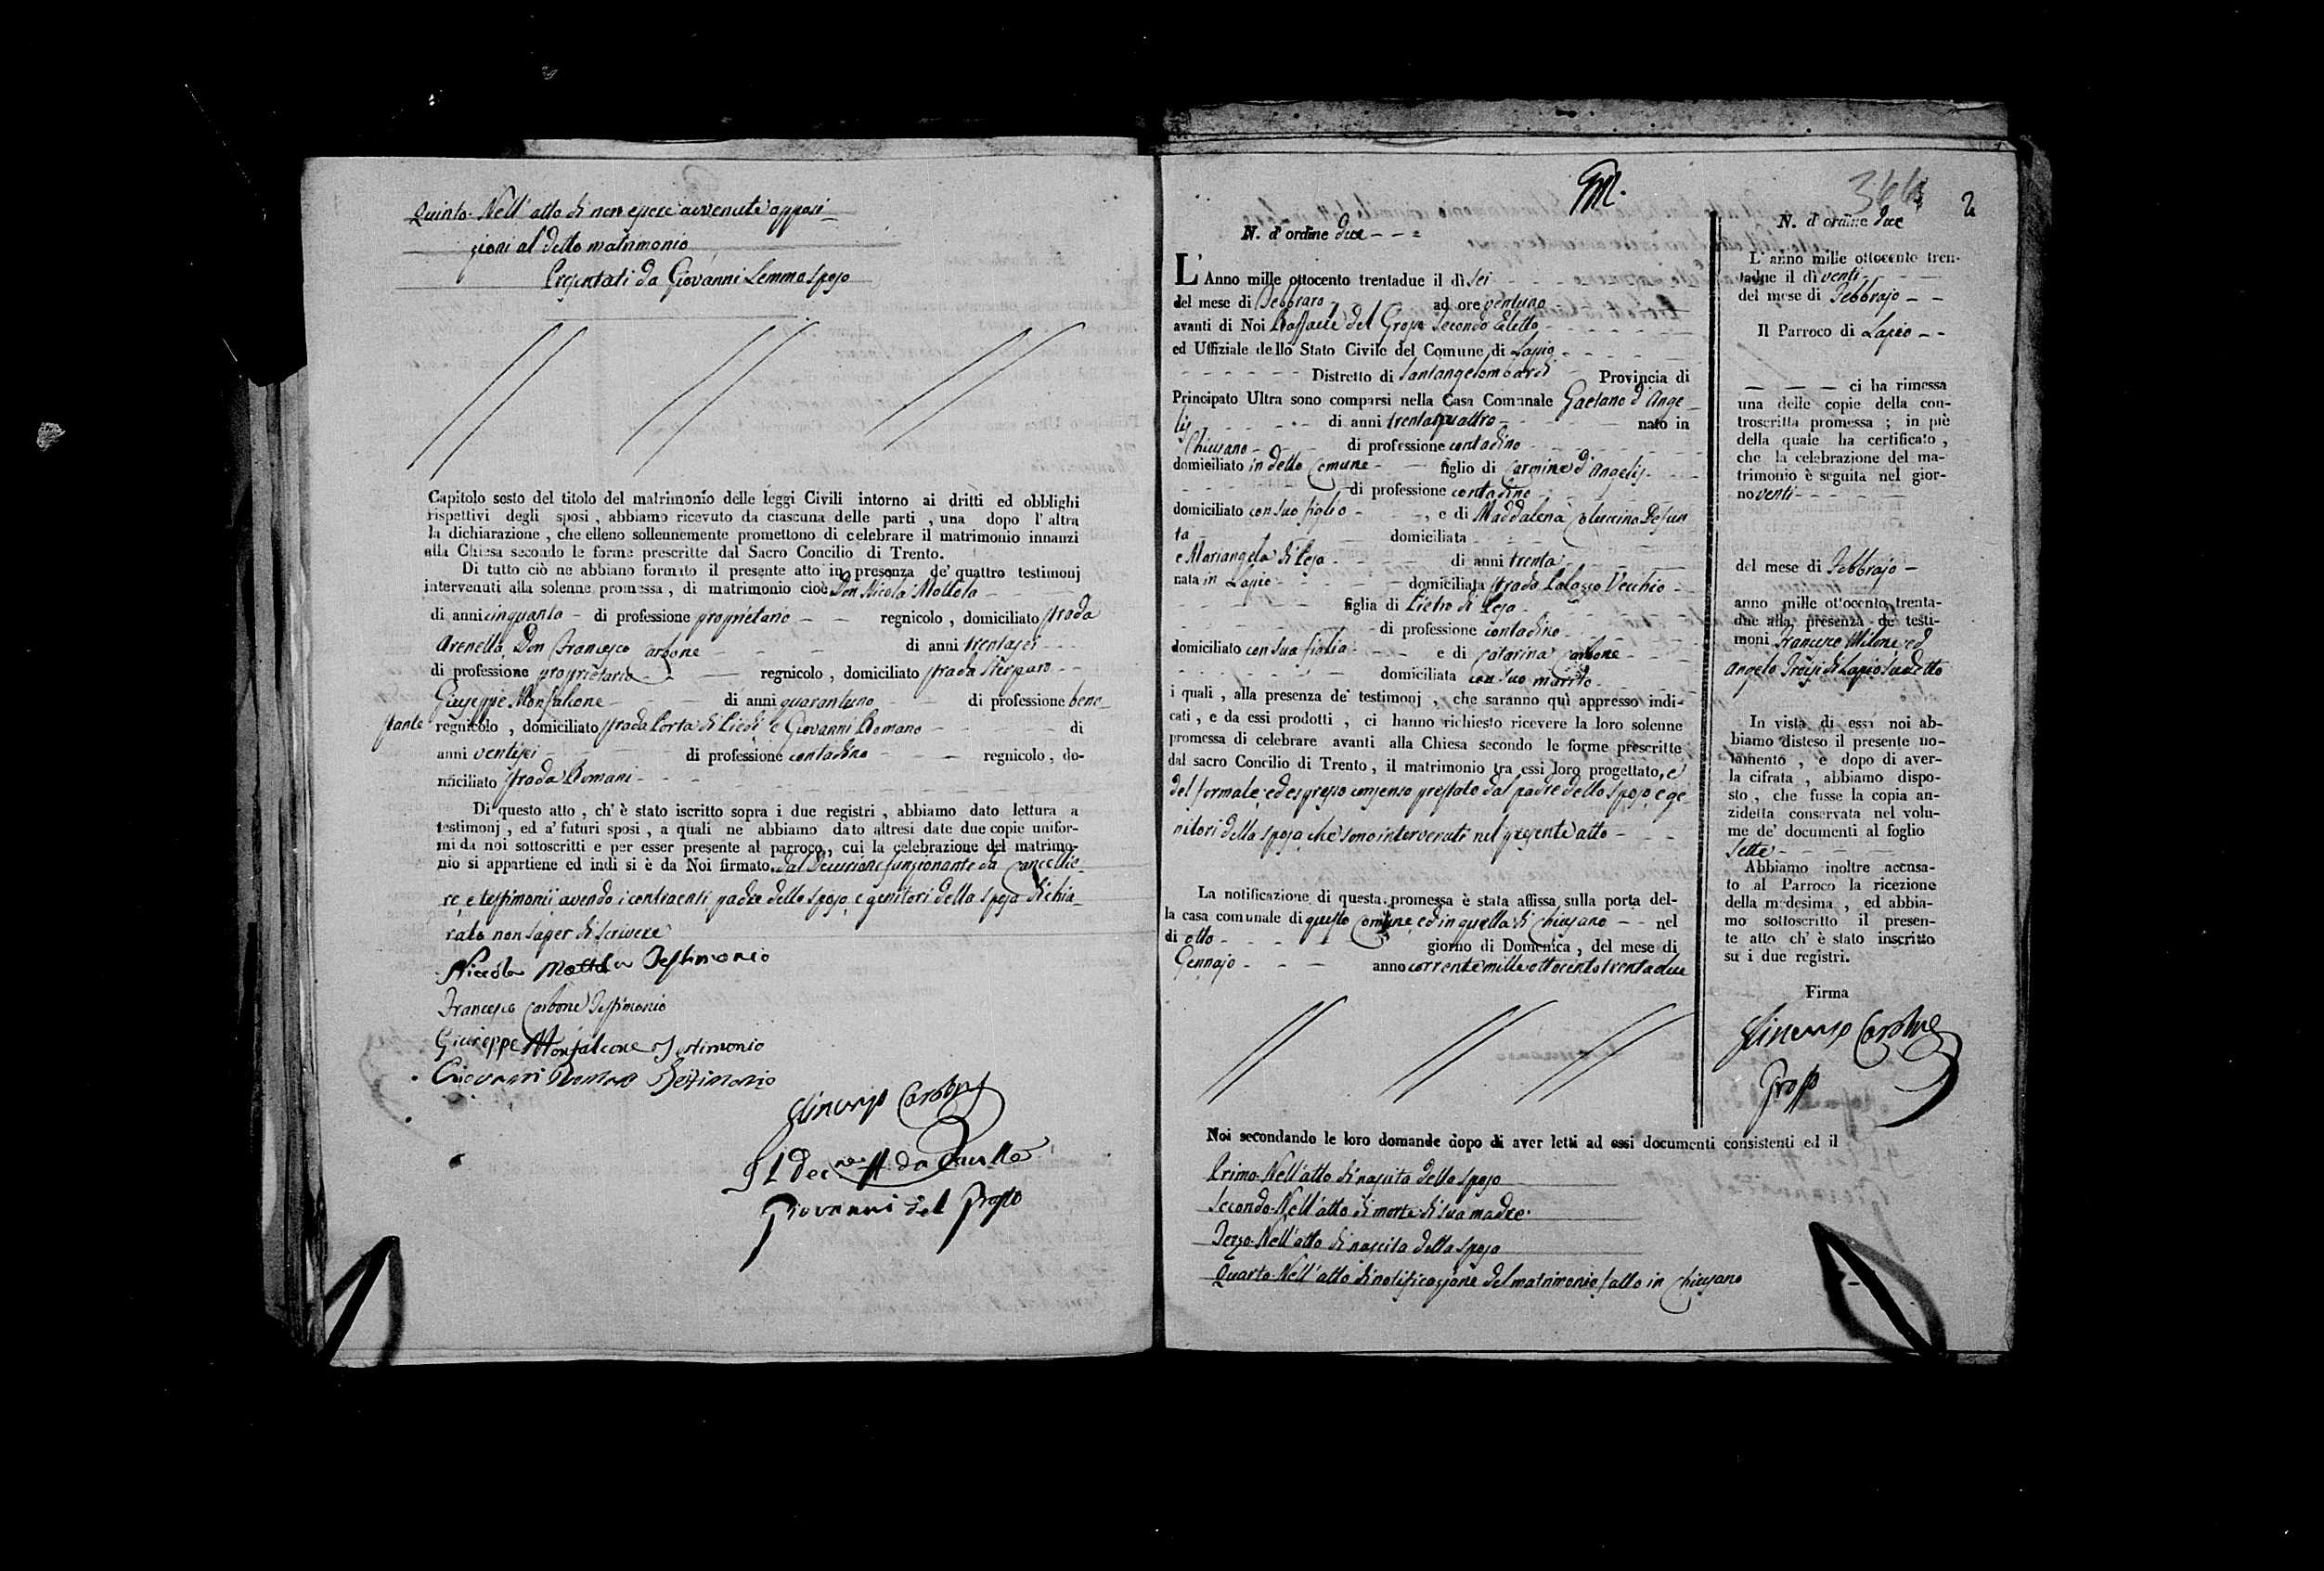 Quinto. Nell' atto di non essere avvenute opposi-
zioni al detto matrimonio
Presentati da Giovanni Lemmo sposo
Capitolo sesto del titolo del matrimonio delle leggi Civili intorno ai dritti ed obblighi
rispettivi degli sposi, abbiamo ricevuto da ciascuna delle parti, una dopo l' altra
la dichiarazione, che elleno sollennemente promettono di celebrare il matrimonio innanzi
alla Chiesa secondo le forme prescritte dal Sacro Concilio di Trento.
Di tutto ciò ne abbiano formato il presente atto in presenza de' quattro testimonj
intervenuti alla solenne promessa, di matrimonio cioè Don Nicola Mottola
di anni cinquanta - di professione proprietario - - regnicolo, domiciliato strada
Arenella, Don Francesco Carbone - - - di anni trentasei - - -
di professione proprietario - - regnicolo, domiciliato strada
Giuseppe Monfalcone - - di anni quarantuno - - di professione bene-
stante regnicolo, domiciliato strada Porta di Piedi e Giovanni Romano - - - di
anni ventisei - - - di professione contadino - - regnicolo, do-
miciliato strada Romani - - -
Di questo atto, ch' è stato iscritto sopra i due registri, abbiamo dato lettura a
testimonj, ed a' futuri sposi, a quali ne abbiamo dato altresì date due copie unifor-
mi da noi sottoscritti e per esser presente al parroco, cui la celebrazione del matrimo-
nio si appartiene ed indi si è da Noi firmato, dal Decurione funzionante da Cancellie-
re, e testimonii avendo i contraenti, padre dello sposo, e genitori della sposa dichia-
rato non saper di scrivere
Niccola Mottola Testimonio
Francesco Carbone Testimonio
Giuseppe Monfalcone Testimonio
Giovanni Romano Testimonio
Carbone
Il Dec.ne ff. da Cancelle
Giovanni del Grosso
366
2
N. d' ordine due - - =
L' Anno mille ottocento trentadue il dì sei - - - -
del mese di Febbraro - ad ore ventuno -
avanti di Noi Raffaele del Grosso Secondo Eletto - - - -
ed Uffiziale dello Stato Civile del Comune di Lapio - - - -
- - - - - Distretto di Santangelombardi - Provincia di
Principato Ultra sono comparsi nella Casa Comunale Gaetano d' Ange-
lis - - - - - di anni trentaquattro - - - - nato in
Chiusano - - - di professione contadino - - - -
domiciliato in detto Comune - - figlio di Carmine d' Angelis - - -
- - - - di professione contadino - - - -
domiciliato con suo figlio - - -, e di Maddalena Coluccino Defun
ta - - - - domiciliata - - - -
e Mariangela di Feso - - - di anni trenta - - -
nata in Lapio - - - - domiciliata strada Palazzo Vecchio -
- - - - figlia di Pietro di Feso - - - -
- - - - di professione contadino - - - -
domiciliato con sua figlia - - - e di Catarina Carbone - - -
- - - - domiciliata con suo marito -
i quali, alla presenza de' testimonj, che saranno quì appresso indi-
cati, e da essi prodotti, ci hanno richiesto ricevere la loro solenne
promessa di celebrare avanti alla Chiesa secondo le forme prescritte
dal sacro Concilio di Trento, il matrimonio tra essi loro progettato, e
del formale, ed espresso consenso prestato dal padre dello sposo, e ge-
nitori della sposa che sono intervenuti nel presente atto - - -
La notificazione di questa promessa è stata affissa sulla porta del-
la casa comunale di questo Comune, ed in quella di Chiusano - - nel
dì otto - - - - giorno di Domenica, del mese di
Gennajo - - - anno corrente mille ottocento trentadue
Noi secondando le loro domande dopo di aver letti ad essi documenti consistenti ed il
Primo. Nell' atto di nascita dello sposo
Secondo. Nell' atto di morte di sua madre.
Terzo. Nell' atto di nascita della sposa
Quarto. Nell' atto di notificazione del matrimonio fatto in Chiusano
N. d' ordine due
L' anno mille ottocento tren-
tadue il dì venti - - -
del mese di Febbrajo - -
Il Parroco di Lapio - -
- - - ci ha rimessa
una delle copie della con-
troscritta promessa; in piè
della quale ha certificato,
che la celebrazione del ma-
trimonio è seguita nel gior-
no venti - - - -
del mese di Febbrajo -
anno mille ottocento trenta-
due alla presenza de' testi-
moni Francesco Milone ed
Angelo Troisi di Lapio sudetto
In vista di essi noi ab-
biamo disteso il presente no-
tamento, e dopo di aver-
la cifrata, abbiamo dispo-
sto, che fusse la copia an-
zidetta conservata nel volu-
me de' documenti al foglio
sette - - - -
Abbiamo inoltre accusa-
to al Parroco la ricezione
della medesima, ed abbia-
mo sottoscritto il presen-
te atto ch' è stato inscritto
su i due registri.
Firma
Carbone
Grosso